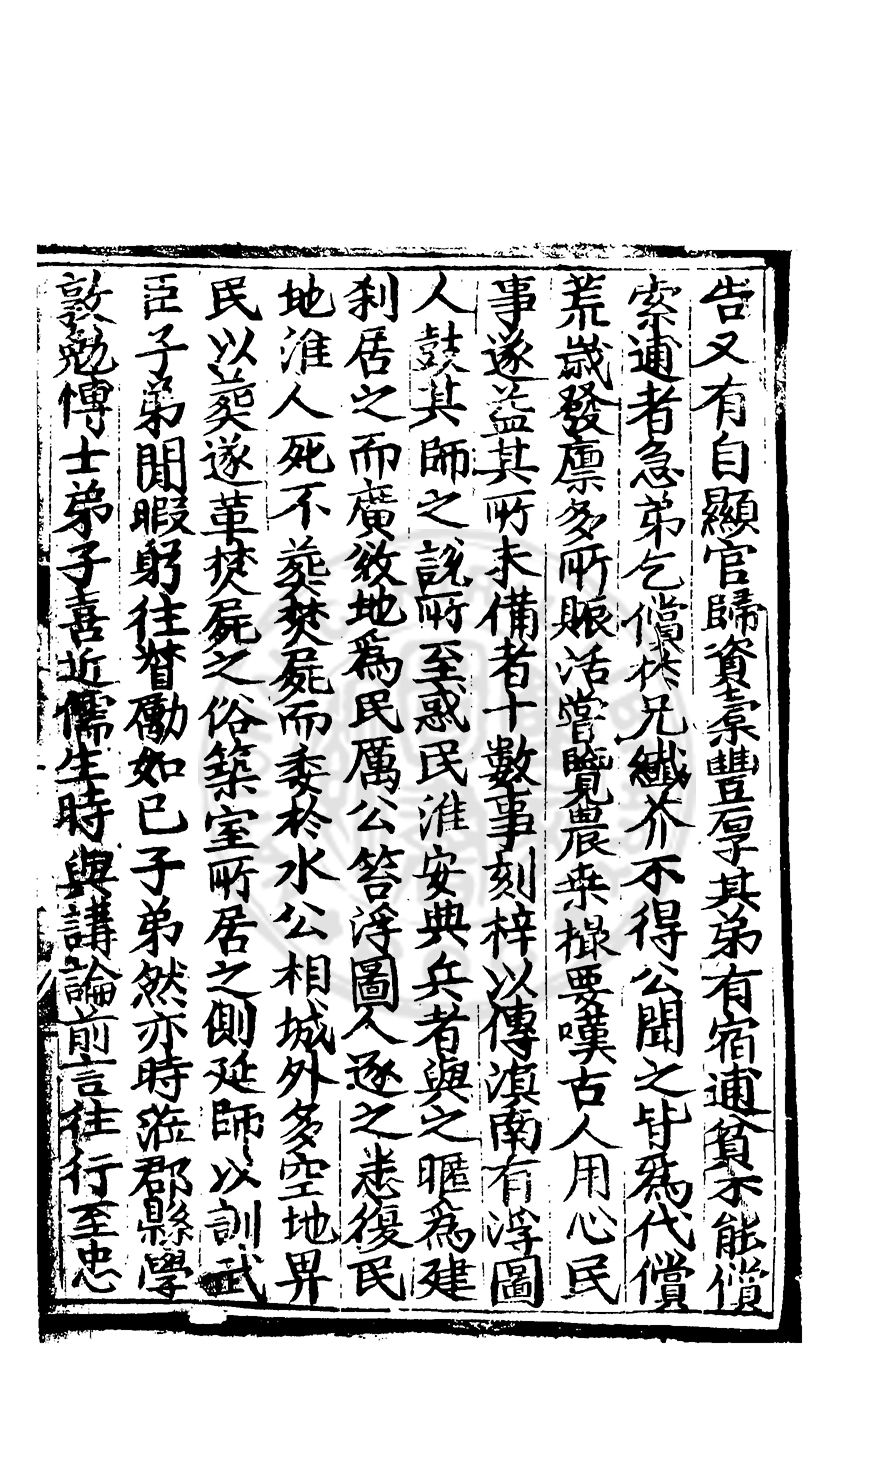 告又有自顯官歸資橐豐厚其弟有宿逋貧不能償
索逋者急弟乞償於兄纖芥不得公聞之皆為代償
荒嵗發廪多所賑活嘗覽農桑撮要嘆古人用心民
事遂益其所未備者十數事刻梓以傳滇南有浮圖
人鼓其師之説所至惑民淮安典兵者與之暱為建
刹居之而廣斂地為民厲公笞浮圖人逐之悉復民
地淮人死不葬焚屍而委於水公相城外多空地畀
民以葬遂革焚屍之俗築室所居之側延師以訓武
臣子弟聞暇躬往督勵如已子弟然亦時蒞郡縣學
敦勉博士弟子喜近儒生時與講論前言往行至忠